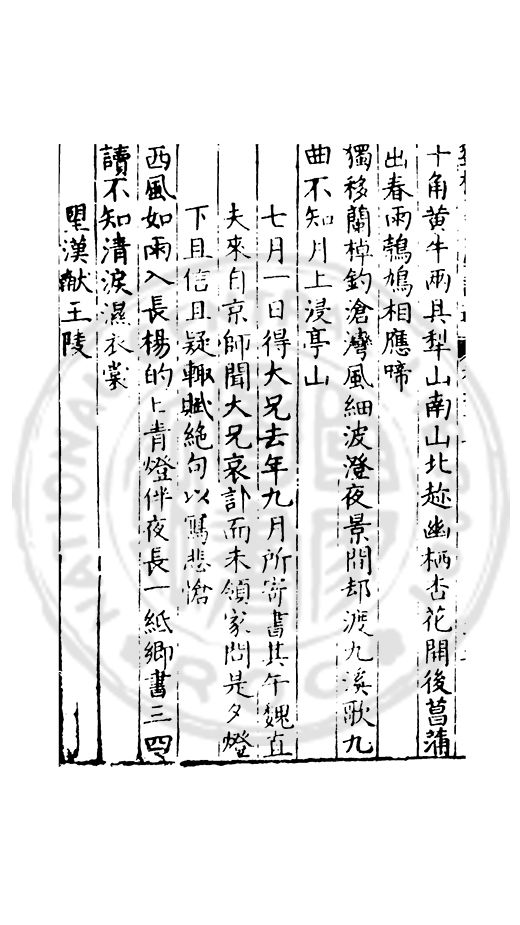 十角黄牛兩具犁山南山北趂幽栖杏花開後菖蒲
出春雨鵓鳩相應啼
獨移蘭棹釣滄灣風細波澄夜景閒却渡九溪歌九
曲不知月上浸亭山
七月一日得大兄去年九月所寄書其午魏直
夫來自京師聞大兄哀訃而未領家問是夕燈
下且信且疑輙賦絶句以寫悲愴
西風如雨入長楊的上青燈伴夜長一紙鄉書三四
讀不知清淚濕衣裳
望漢獻王陵